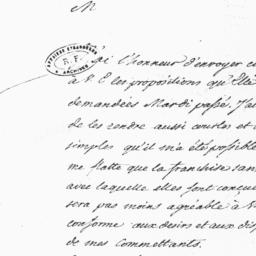 M
AFFAIRES ETRANGERES
R.F.
ARCHIVES
j'ai l'honneur d'envoyer
à V. E. les propositions qu'Elle
demandées Mardi passé. J'ai
de les rendre aussi courtes et
simples qu'il m'a été possible
me flatte que la franchise
avec laquelle elles sont conçues
sera pas moins agréable à V
conforme aux desirs et aux
de mes Commettants.